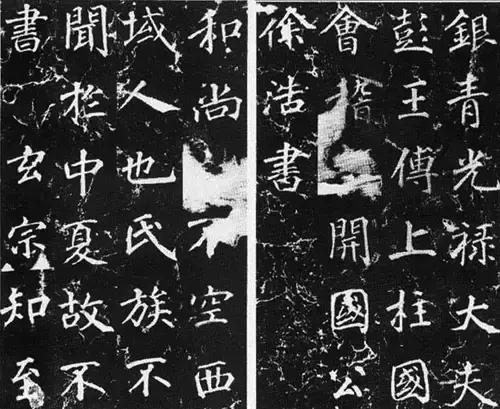 銀青光禄大夫
彭王傅上柱國
會稽開國公
徐浩書
和尚不空西
域人也氏族不
聞於中夏故不
書 玄宗知至